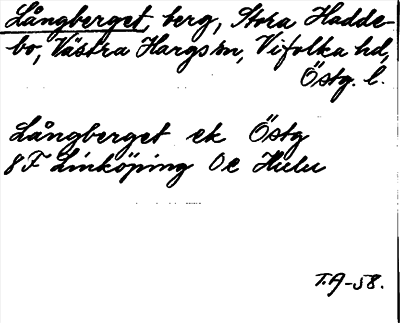 Långberget, berg, Stora Hadde-
bo, Västra Hargs sn, Vifolka hd,
Östg. l.
Långberget ek Östg
8F Linköping 0e Hulu
T.A-58.